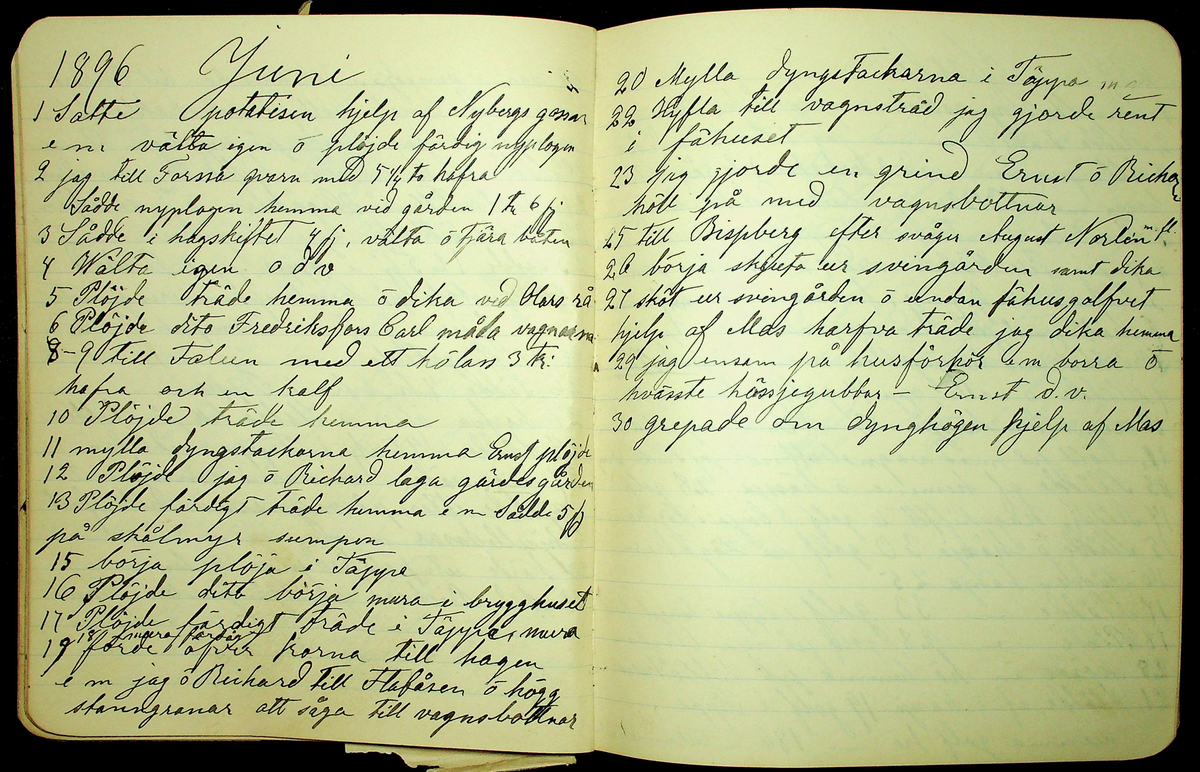 1896 Juni
1 Satte potatisen hjelp af Nybergs gossar
e m välta igen ö plöjde färdig nyplogen
2 jag till Forssa qvarn med 5 1/4 to hafra
Sådde nyplogen hemma vid gården 1 tr 6 fj
3 Sådde i hagskiftet 4 fj, välta ö tjära båten
4 Wälta igen o d v
5 Plöjde träde hemma ö dika ved Olars rå
6 Plöjde dito Fredriksfors Carl måla vagnarna
8-9 till Falun med ett hölass 3 tr:
hafra och en kalf
10 Plöjde träde hemma
11 mylla dyngstackarna hemma Ernst plöjde
12 Plöjde jag ö Richard laga gärdesgården
13 Plöjde färdigt träde hemma e m Sådde 5 fj
på skålmyr sumpen
15 börja plöja i Täppe
16 Plöjde dito börja mura i brygghuset
17 Plöjde färdigt träde i Täppa, mura
18 mura färdigt
19 förde öfver korna till hagen
e m jag ö Richard till Flafåsen ö högg
stamgranar att såga till vagnsbottnar
20 Mylla dyngstackarna i Täppa
22 Hyfla till vagnsträd jag gjorde rent
i fähuset
23 jag gjorde en grind Ernst ö Richar
höll på med vagnsbottnar
25 till Bispberg efter svåger August Norlén m fl.
26 börja skjuta ur svingården samt dika
27 sköt ur svingården ö undan fähusgolfvet
hjelp af Mas harfva träde jag dika hemma
29 jag ensam på husförhör em borra ö
hvässte hässjegubbar - Ernst d. v.
30 grepade om dynghögen hjelp af Mas